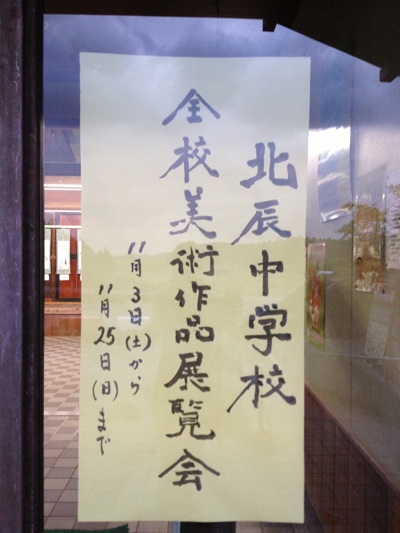 北辰中学校
全校美術作品展覧会
11月3日(土)から
11月25日(日)まで